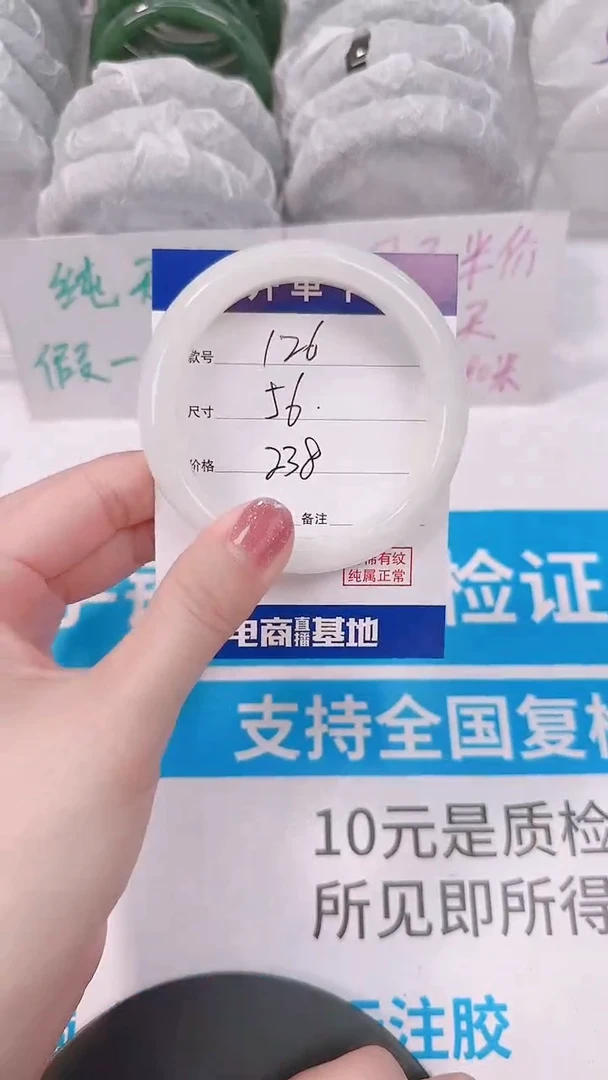 纯
半价
假一
米
开单卡
款号 126
尺寸 56.
价格 238
备注
棉有纹
纯属正常
电商直播基地
检证
支持全国复检
10元是质检
所见即所得
注胶